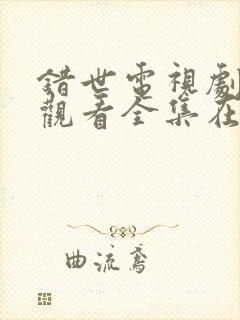 錯世電視劇
觀看全集在
曲流鳶